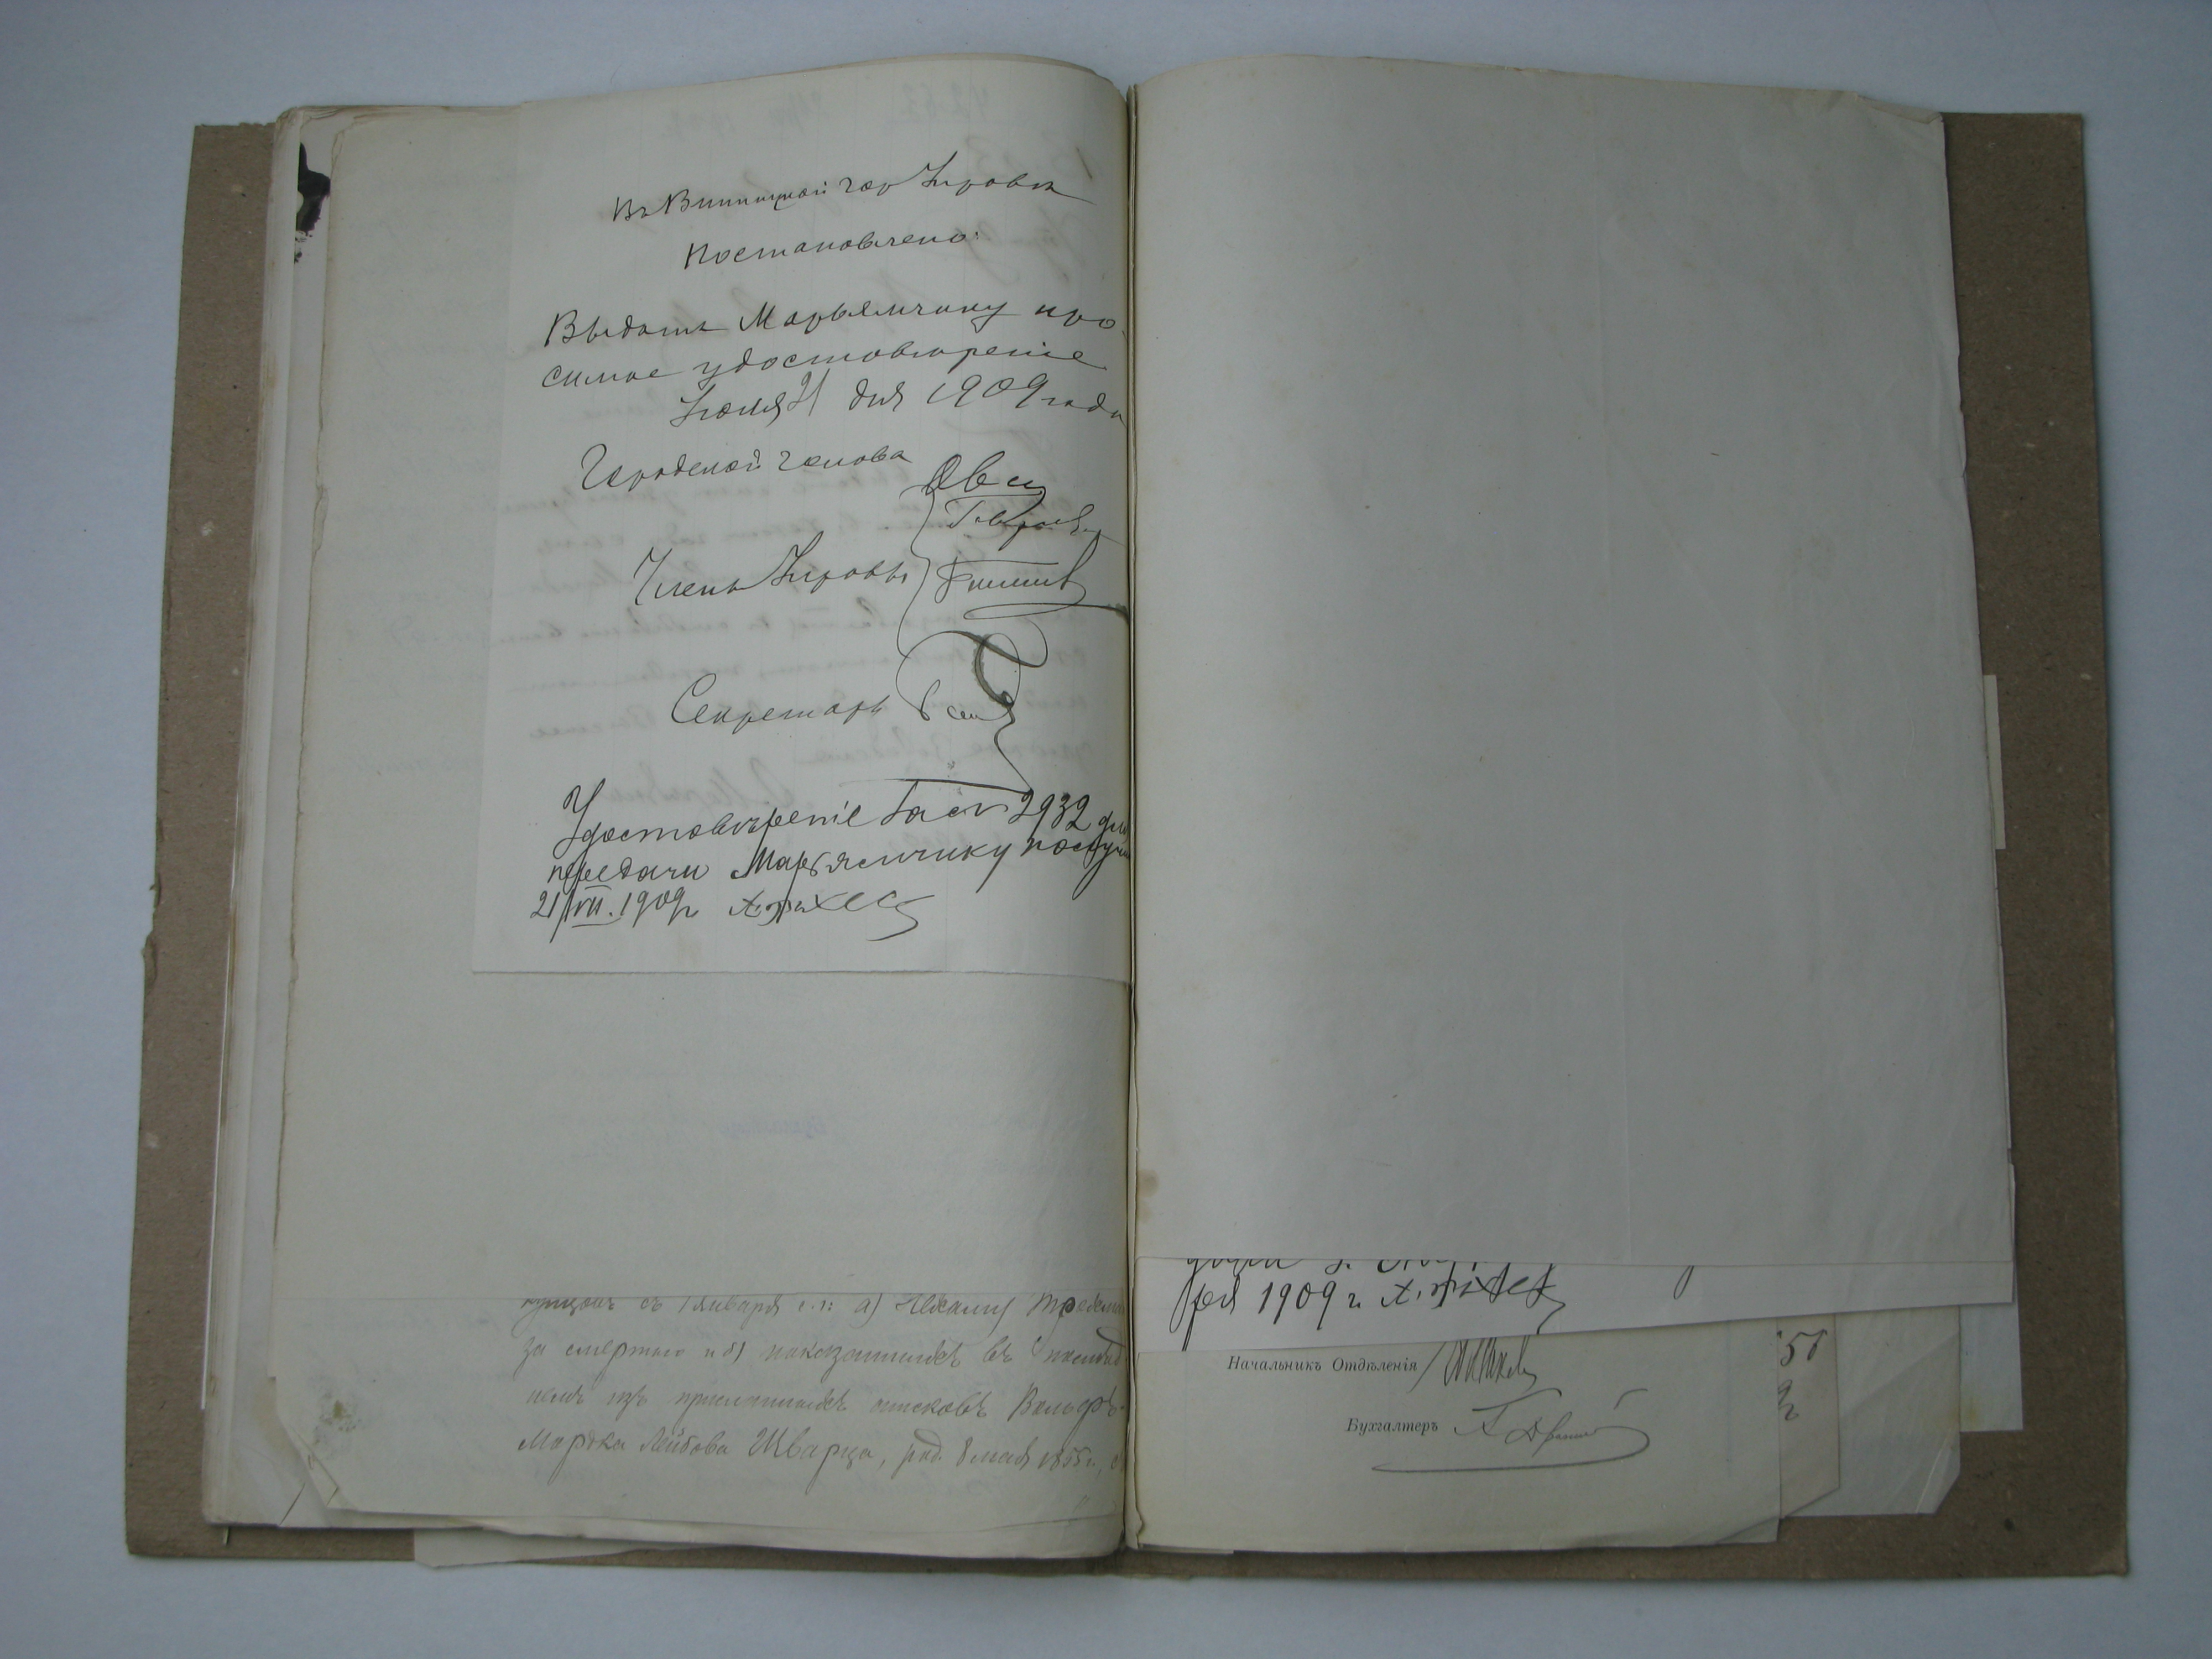 Въ Винницкой гор Управѣ
Постановлено:
Выдать Марьямчику про-
симое удостовѣреніе
Іюля 21 дня 1909 года
Городской голова
Члены Управы
Секретарь
Удостовѣреніе за № 2932 для
передачи Марьямчику получ
21/VII. 1909 г.
съ 1 января с.г: а)
за смертью и б) показанныхъ въ
немъ изъ присланныхъ списковъ Вольфъ-
Мордка Лейбова Шварца, род. 8 мая 1855 г.,
ря 1909 г.
Начальникъ Отдѣленія
Бухгалтеръ